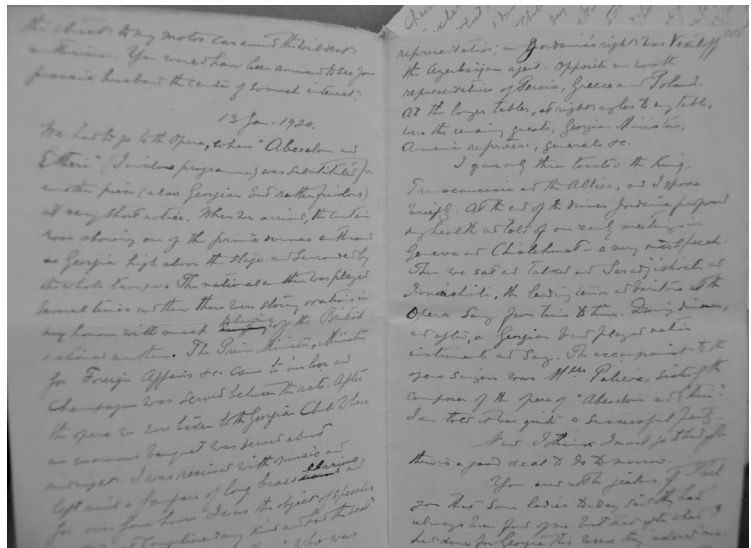 the street to my motor car amid the wildest
enthusiasm. You would have been amused to see your
prosaic husband the centre of so much interest.
13 Jan. 1920.
We had to go to the Opera, where "Abesalom and
Etheri" (I enclose programme) was substituted for
another piece (also Georgian but rather frivolous)
at very short notice. When we arrived, the curtain
rose showing one of the prima donnas enthroned
as Georgia high above the stage and surrounded by
the whole troupe. The national anthem was played
several times and then there were stormy ovations in
my honour with much playing of the British
national anthem. The Prime Minister, Minister
for Foreign Affairs &c. came to our box and
champagne was served between the acts. After
the opera we were taken to the Georgian Club where
an enormous banquet was served about
midnight. I was received with music and
left amid a fanfare of long brass clarions and
for over four hours I was the object of speeches
complimentary kind and
who was
representatives; on Jordania's right was Vekiloff
the Azerbaijan agent. Opposite me were the
representatives of Persia, Greece and Poland.
At the longer tables, at right angles to my table,
were the remaining guests, Georgian Ministers,
Armenian represen., generals &c.
I gave only three toasts: the King,
Transcaucasia and the Allies, and I spoke
briefly. At the end of the dinner Jordania proposed
my health and told of our early meetings in
Geneva and Chislehurst in a very nice speech.
Then we sat and talked and Saradjishvili and
Inashvili, the leading tenor and baritone at the
Opera sang from time to time. During dinner,
and after, a Georgian band played native
instruments and sang. The accompanist to the
opera singers was Mlle Palieva, sister of the
composer of the opera of "Abesalom and Etheri".
I am told it was quite a successful party.
Now I think I must go to bed for
there is a good deal to do to-morrow.
You and the
you that some ladies to-day said they had
always been fond of me but that after what I
had done for Georgia this week they adored me